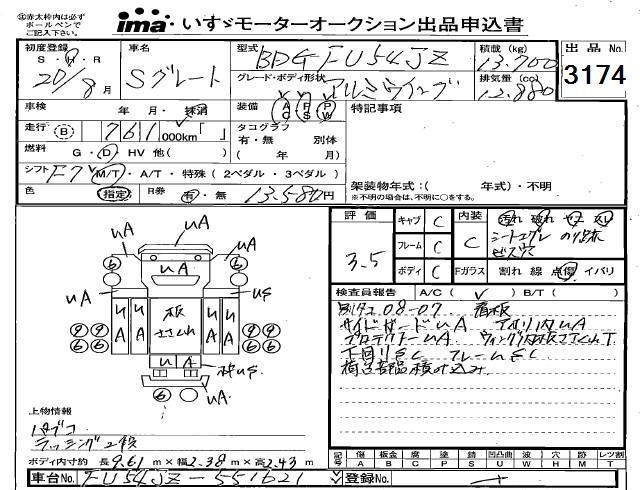 赤太枠内は必ず
ボールペンで
ご記入下さい。
ima いすゞモーターオークション出品申込書
初度登録
S・H・R
20/8月
車名
Sグレート
型式
BDG FU54JZ
グレード・ボディ形状
アルミウイング
積載(kg)
13.700
排気量(cc)
12.880
出品No.
3174
車検 年 月・抹消
走行 B 761,000km「 」
燃料 G・D・HV 他( )
シフト F7 M/T・A/T・特殊(2ペダル・3ペダル)
色 指定 R券 有・無 13.580円
装備 A/C P/S P/W
タコグラフ
有・無 別体
( 年 月)
特記事項
架装物年式:( 年式)・不明
※不明の場合は、不明に○をする。
評価
3.5
キャブ C
フレーム C
ボディ C
内装 C
汚れ 破れ
シートコゲ
Fガラス 割れ 線 点傷 イバリ
検査員報告 A/C( ✓ ) B/T( )
別タコ 08-07 看板
サイドガードuA アオリ内uA
プロテクターuA
下回りSC フレームSC
荷台部品積み込み
uA
uA
uA
uA
uA
uS
板
uA
上物情報
ラッシング2段
ボディ内寸約 長9.61m×幅2.38m×高2.43m
記号 傷 板金 腐 塗 錆 凹凸曲 波 穴 跡 レツ割
A B C P S U W H M T
車台No. FU54JZ-551621
登録No.